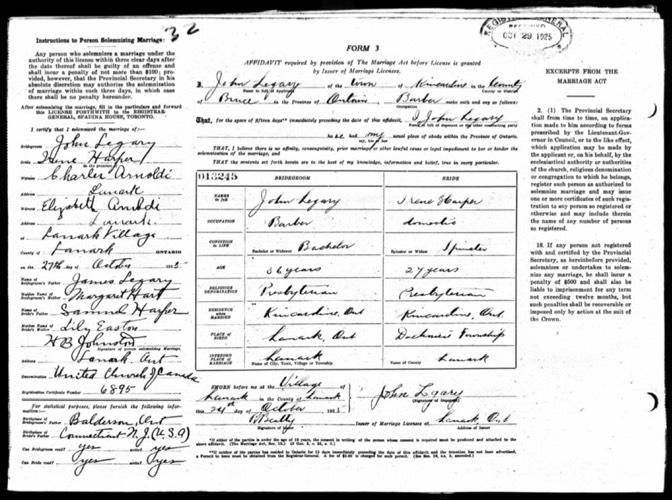 32
Instructions to Person Solemnizing Marriage:
Any person who solemnizes a marriage under the
authority of this license within three clear days after
the date thereof shall be guilty of an offence and
shall incur a penalty of not more than $100; pro-
vided, however, that the Provincial Secretary in his
absolute discretion may authorize the solemnization
of marriage within such three days, in which case
there shall be no penalty hereunder.
After solemnizing the marriage, fill in the particulars and forward
this LICENSE FORTHWITH to the REGISTRAR-
GENERAL, SPADINA HOUSE, TORONTO.
I certify that I solemnized the marriage of:
Bridegroom John Legary
Bride Irene Harper
in the presence of
Witness Charles Arnoldi
Address Lanark
Witness Elizabeth Arnoldi
Address Lanark
at Lanark Village
County of Lanark ONTARIO
on the 27th day of October
Name of Bridegroom's Father James Legary
Maiden Name of Bridegroom's Mother Margaret Hart
Name of Bride's Father Samuel Harper
Maiden Name of Bride's Mother Lily Easton
H B Johnston
Signature of person solemnizing Marriage.
Address Lanark Ont
Denomination United Church of Canada
Registration Certificate Number 6895
For statistical purposes, please furnish the following infor-
mation:—
Birthplace of Bridegroom's Father Balderson, Ont
Birthplace of Bride's Father Connecticut N.J. (U.S.A)
Can Bridegroom read? yes write? yes
Can Bride read? yes write? yes
FORM 3
AFFIDAVIT required by provision of The Marriage Act before License is granted
by Issuer of Marriage Licenses.
I, John Legary of the Town of Kincardine in the County
Name in full of Applicant
of Bruce in the Province of Ontario, Barber make oath and say as follows:
That, for the space of fifteen days immediately preceding the date of this affidavit, I John Legary
had my usual place of abode within the Province of Ontario.
THAT, I believe there is no affinity, consanguinity, prior marriage or other lawful cause or legal impediment to bar or hinder
the solemnization of the marriage, and
THAT the contents set forth herein are to the best of my knowledge, information and belief, true in every particular.
013245 BRIDEGROOM BRIDE
NAMES in full John Legary Irene Harper
OCCUPATION Barber domestic
CONDITION in LIFE Bachelor or Widower Bachelor Spinster or Widow Spinster
AGE 36 years 27 years
RELIGIOUS DENOMINATION Presbyterian Presbyterian
RESIDENCE when MARRIED Kincardine, Ont Kincardine, Ont
PLACE OF BIRTH Lanark, Ont Township
INTENDED PLACE of MARRIAGE Lanark Lanark
Name of City, Town, Village or Township Name of County
SWORN before me at the Village of
Lanark in the County of Lanark
this 24th day of October
John Legary
(Signature of Applicant)
Beatty
Signature of Issuer
Issuer of Marriage Licenses at Lanark Ont
Address of Issuer
REGISTRAR GENERAL
RECEIVED
OCT 29 1925
EXCERPTS FROM THE
MARRIAGE ACT
2. (1) The Provincial Secretary
shall from time to time, on applica-
tion made to him according to forms
prescribed by the Lieutenant-Gover-
nor in Council, or to the like effect,
which application may be made by
the applicant or, on his behalf, by the
ecclesiastical authority or authorities
of the church, religious denomination
or congregation to which he belongs,
register such person as authorized to
solemnize marriage and may issue
one or more certificates of such regis-
tration to any person so registered or
otherwise and may include therein
the name of any number of persons
so registered.
18. If any person not registered
with and certified by the Provincial
Secretary, as hereinbefore provided,
solemnizes or undertakes to solem-
nize any marriage, he shall incur a
penalty of $500 and shall also be
liable to imprisonment for any term
not exceeding twelve months, but
such penalties shall be recoverable or
imposed only by action at the suit of
the Crown.